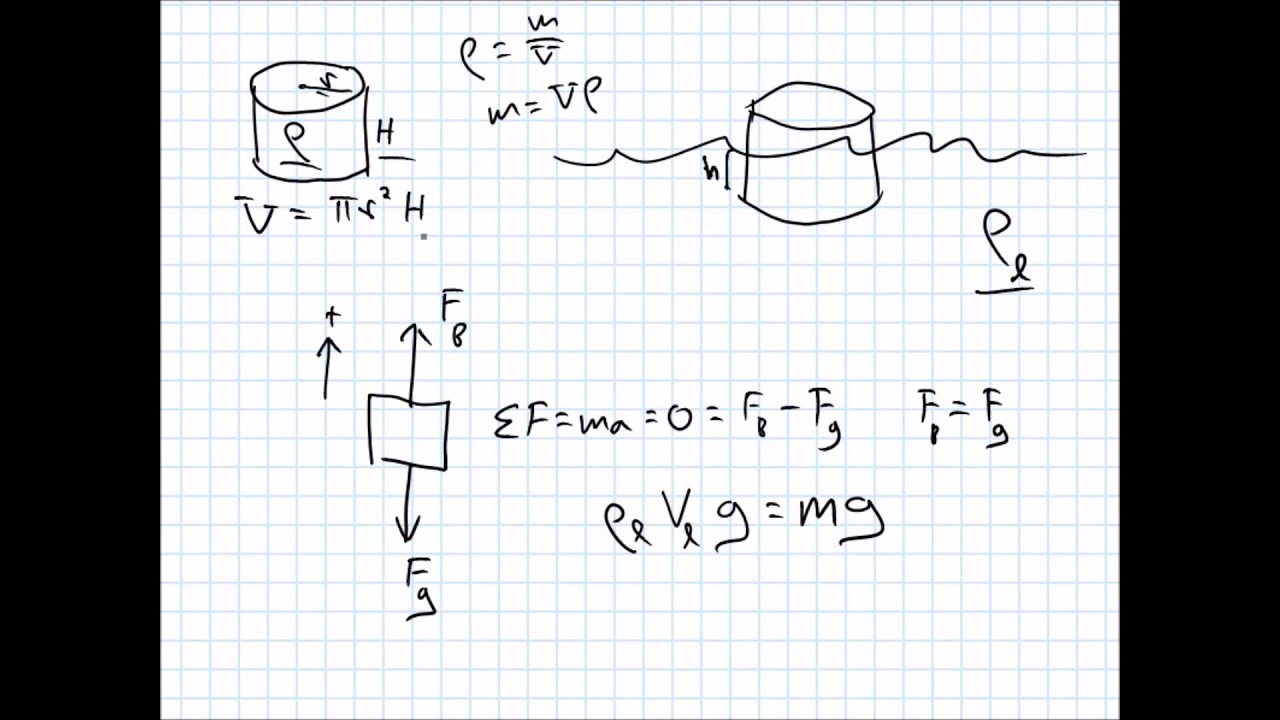 r
ρ
H
V = πr² H
ρ = m/V
m = Vρ
h
ρ_l
+
F_B
F_g
ΣF = ma = 0 = F_B - F_g
F_B = F_g
ρ_l V_l g = mg